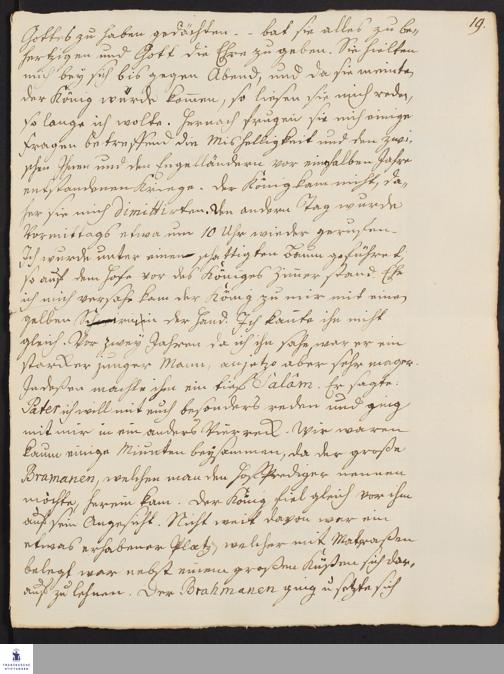 19.
Gottes zu haben gedächten. -- bat sie alles zu be-
hertzigen und Gott die Ehre zu geben. Sie hielten
mich bey sich bis gegen Abend, und da sie meinten,
der König würde kommen, so liesen sie mich reden,
so lange ich wolte. Hernach frugen sie mich einige
Fragen betreffend die Mishelligkeit und den zwi-
schen Ihnen und den Engelländern vor einhalben Jahre
entstandenen Kriege. Der König kam nicht, da-
her sie mich dimittirten. Den andern Tag wurde
Vormittags etwa um 10 Uhr wieder gerufen.
Ich wurde unter einen schattigten Baum geführet,
so auf dem Hofe vor des Königes Zimer stand. Ehe
ich mich versahe kam der König zu mir mit einem
gelben in der Hand. Ich kante ihn nicht
gleich. Vor zwey Jahren da ich ihn sahe war er ein
starker junger Mann, anjetzo aber sehr mager.
Indeßen machte ihm ein tief Salam. Er sagte:
Pater ich will mit euch besonders reden und ging
mit mir in ein anders Vierreck. Wir waren
kaum einige Minuten beysammen, da der große
Bramanen, welchen man den HofPrediger nennen
möchte, herein kam. Der König fiel gleich vor ihm
auf sein Angesicht. Nicht weit davon war ein
etwas erhabener Platz, welcher mit Matraßen
belegt war nebst einem großen Küßen sich dar-
auf zu lehnen. Der Brahmanen ging u setzte sich
FRANCKESCHE
STIFTUNGEN